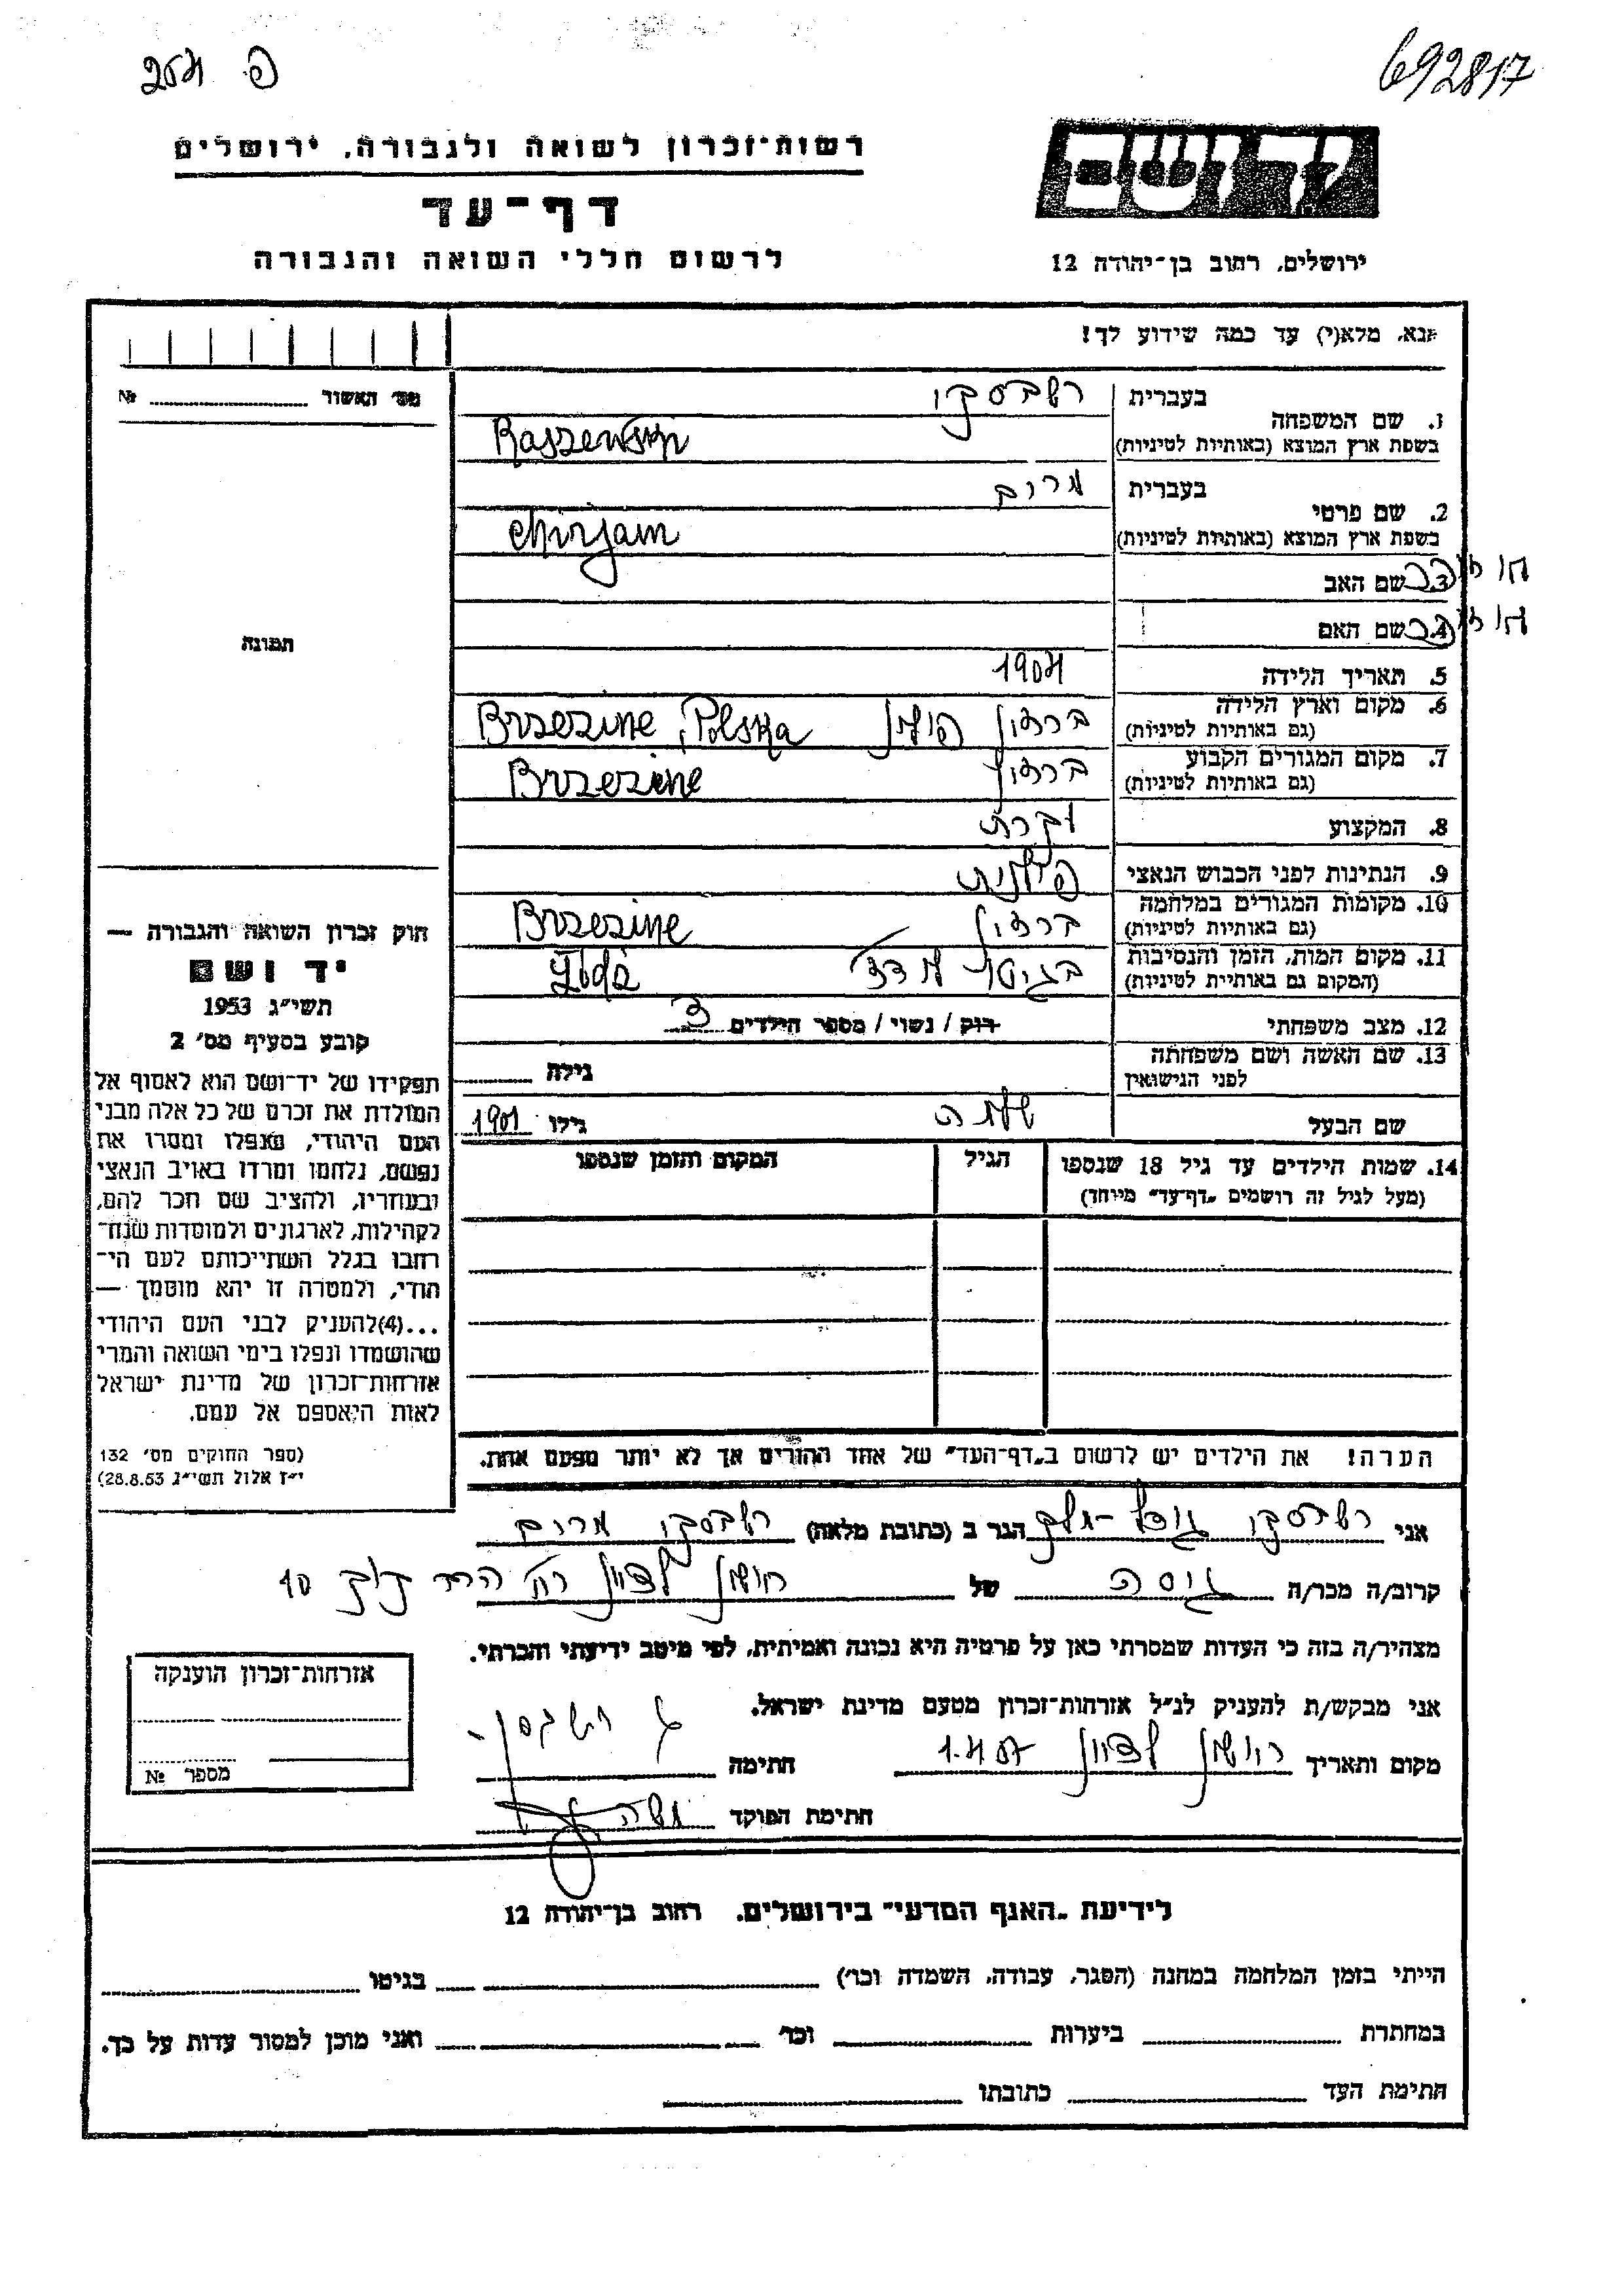 692817
רשות־זכרון לשואה ולגבורה, ירושלים
דף־עד
לרשום חללי השואה והגבורה
ירושלים, רחוב בן־יהודה 12
אנא, מלא(י) עד כמה שידוע לך!
מס׳ האשור №
1. שם המשפחה
בעברית
רשבסקי
בשפת ארץ המוצא (באותיות לטיניות)
Raszewski
2. שם פרטי
בעברית
מרים
בשפת ארץ המוצא (באותיות לטיניות)
Mirjam
3. שם האב
4. שם האם
תמונה
5. תאריך הלידה 1904
6. מקום וארץ הלידה
(גם באותיות לטיניות)
ברזין פולין Brzezine, Polska
7. מקום המגורים הקבוע
(גם באותיות לטיניות)
ברזין Brzezine
8. המקצוע
9. הנתינות לפני הכבוש הנאצי פולנית
10. מקומות המגורים במלחמה
(גם באותיות לטיניות)
ברזין Brzezine
11. מקום המות, הזמן והנסיבות
(המקום גם באותיות לטיניות)
בגיטו לודז׳
12. מצב משפחתי רוק / נשוי / מספר הילדים 3
13. שם האשה ושם משפחתה
לפני הנישואין
גילה
שם הבעל שלמה גילו 1901
14. שמות הילדים עד גיל 18 שנספו
(מעל לגיל זה רושמים „דף־עד״ מיוחד)
הגיל
המקום והזמן שנספו
חוק זכרון השואה והגבורה —
יד ושם
תשי״ג 1953
קובע בסעיף מס׳ 2
תפקידו של יד־ושם הוא לאסוף אל
המולדת את זכרם של כל אלה מבני
העם היהודי, שנפלו ומסרו את
נפשם, נלחמו ומרדו באויב הנאצי
ובעוזריו, ולהציב שם וזכר להם,
לקהילות, לארגונים ולמוסדות שנח־
רבו בגלל השתייכותם לעם הי־
הודי, ולמטרה זו יהא מוסמך —
...(4)להעניק לבני העם היהודי
שהושמדו ונפלו בימי השואה והמרי
אזרחות־זכרון של מדינת ישראל
לאות היאספם אל עמם.
(ספר החוקים מס׳ 132
י״ז אלול תשי״ג 28.8.53)
הערה! את הילדים יש לרשום ב„דף־העד״ של אחד ההורים אך לא יותר מפעם אחת.
אני רשבסקי הגר ב (כתובת מלאה) רשבסקי מרים
קרוב/ה מכר/ה גיסה של ראשון לציון רח׳ הרב קוק 10
מצהיר/ה בזה כי העדות שמסרתי כאן על פרטיה היא נכונה ואמיתית, לפי מיטב ידיעתי והכרתי.
אני מבקש/ת להעניק לנ״ל אזרחות־זכרון מטעם מדינת ישראל.
מקום ותאריך ראשון לציון 1.4.57 חתימה
חתימת הפוקד משה
אזרחות־זכרון הוענקה
מספר №
לידיעת „האגף המדעי״ בירושלים. רחוב בן־יהודה 12
הייתי בזמן המלחמה במחנה (הסגר, עבודה, השמדה וכו׳) בגיטו
במחתרת ביערות וכו׳ ואני מוכן למסור עדות על כך.
חתימת העד כתובתו